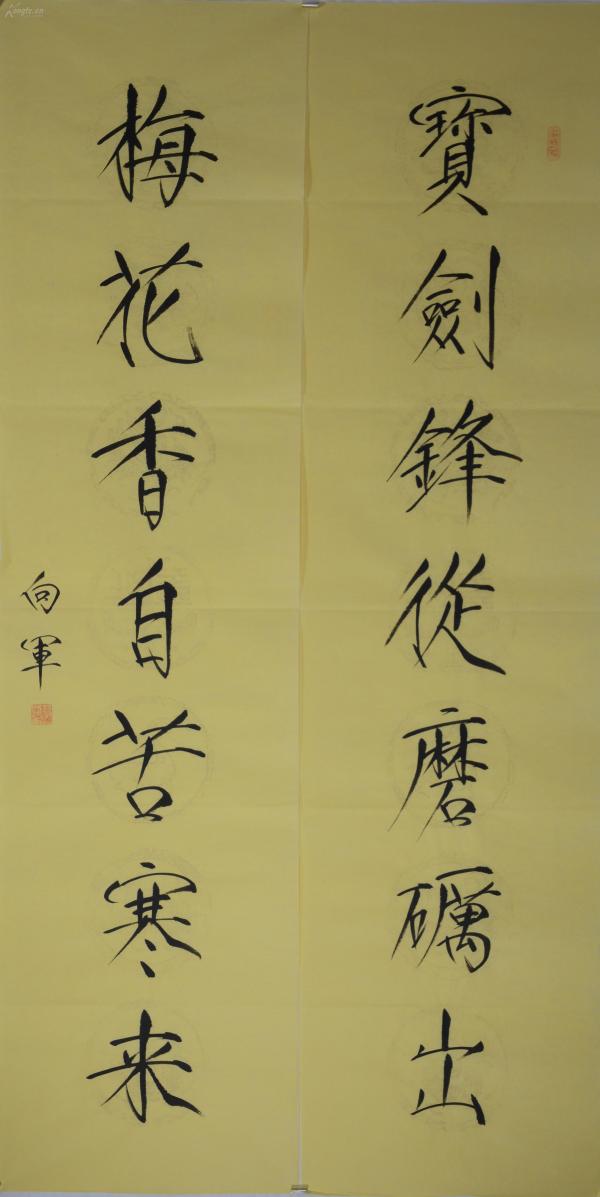 寶劍鋒從磨礪出
梅花香自苦寒来
向軍
Kongfz.cn